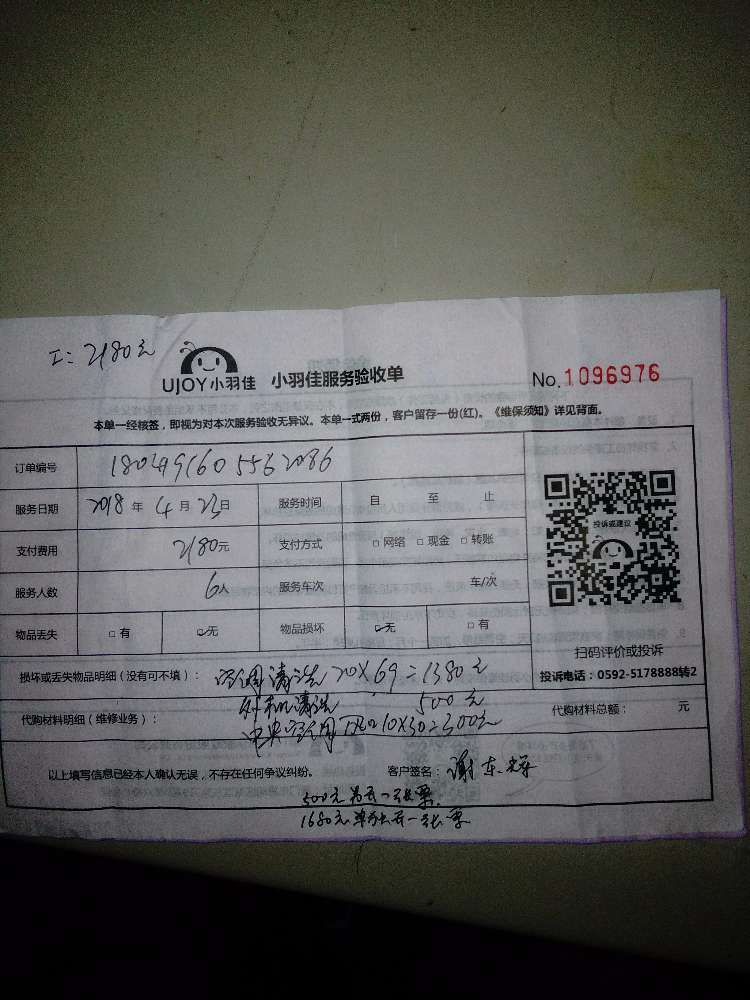 工: 2180元
UJOY小羽佳 小羽佳服务验收单 No.1096976
本单一经核签，即视为对本次服务验收无异议。本单一式两份，客户留存一份(红)。《维保须知》详见背面。
订单编号
服务日期 2018年4月23日 服务时间 自 至 止
投诉或建议
支付费用 2180元 支付方式 □网络 □现金 □转账
服务人数 6人 服务车次 车/次
物品丢失 □有 □无 物品损坏 □无 □有
扫码评价或投诉
损坏或丢失物品明细（没有可不填）： 空调清洗 20X69=1380元
投诉电话：0592-5178888转2
外机清洗 500元
代购材料明细（维修业务）： 中央空调 10X30=300元 代购材料总额： 元
以上填写信息已经本人确认无误，不存在任何争议纠纷。 客户签名： 谢东辉
500元另开一张票.
1680元单独开一张票